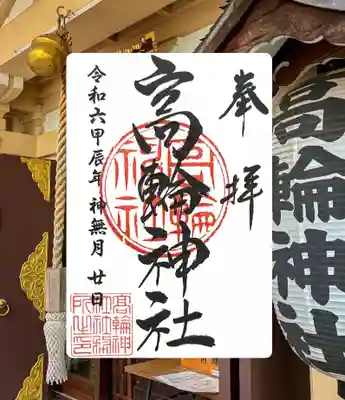 奉拝
高輪神社
令和六甲辰年 神無月 廿日
高輪神社
髙輪神
社社務
所之印
高輪神社